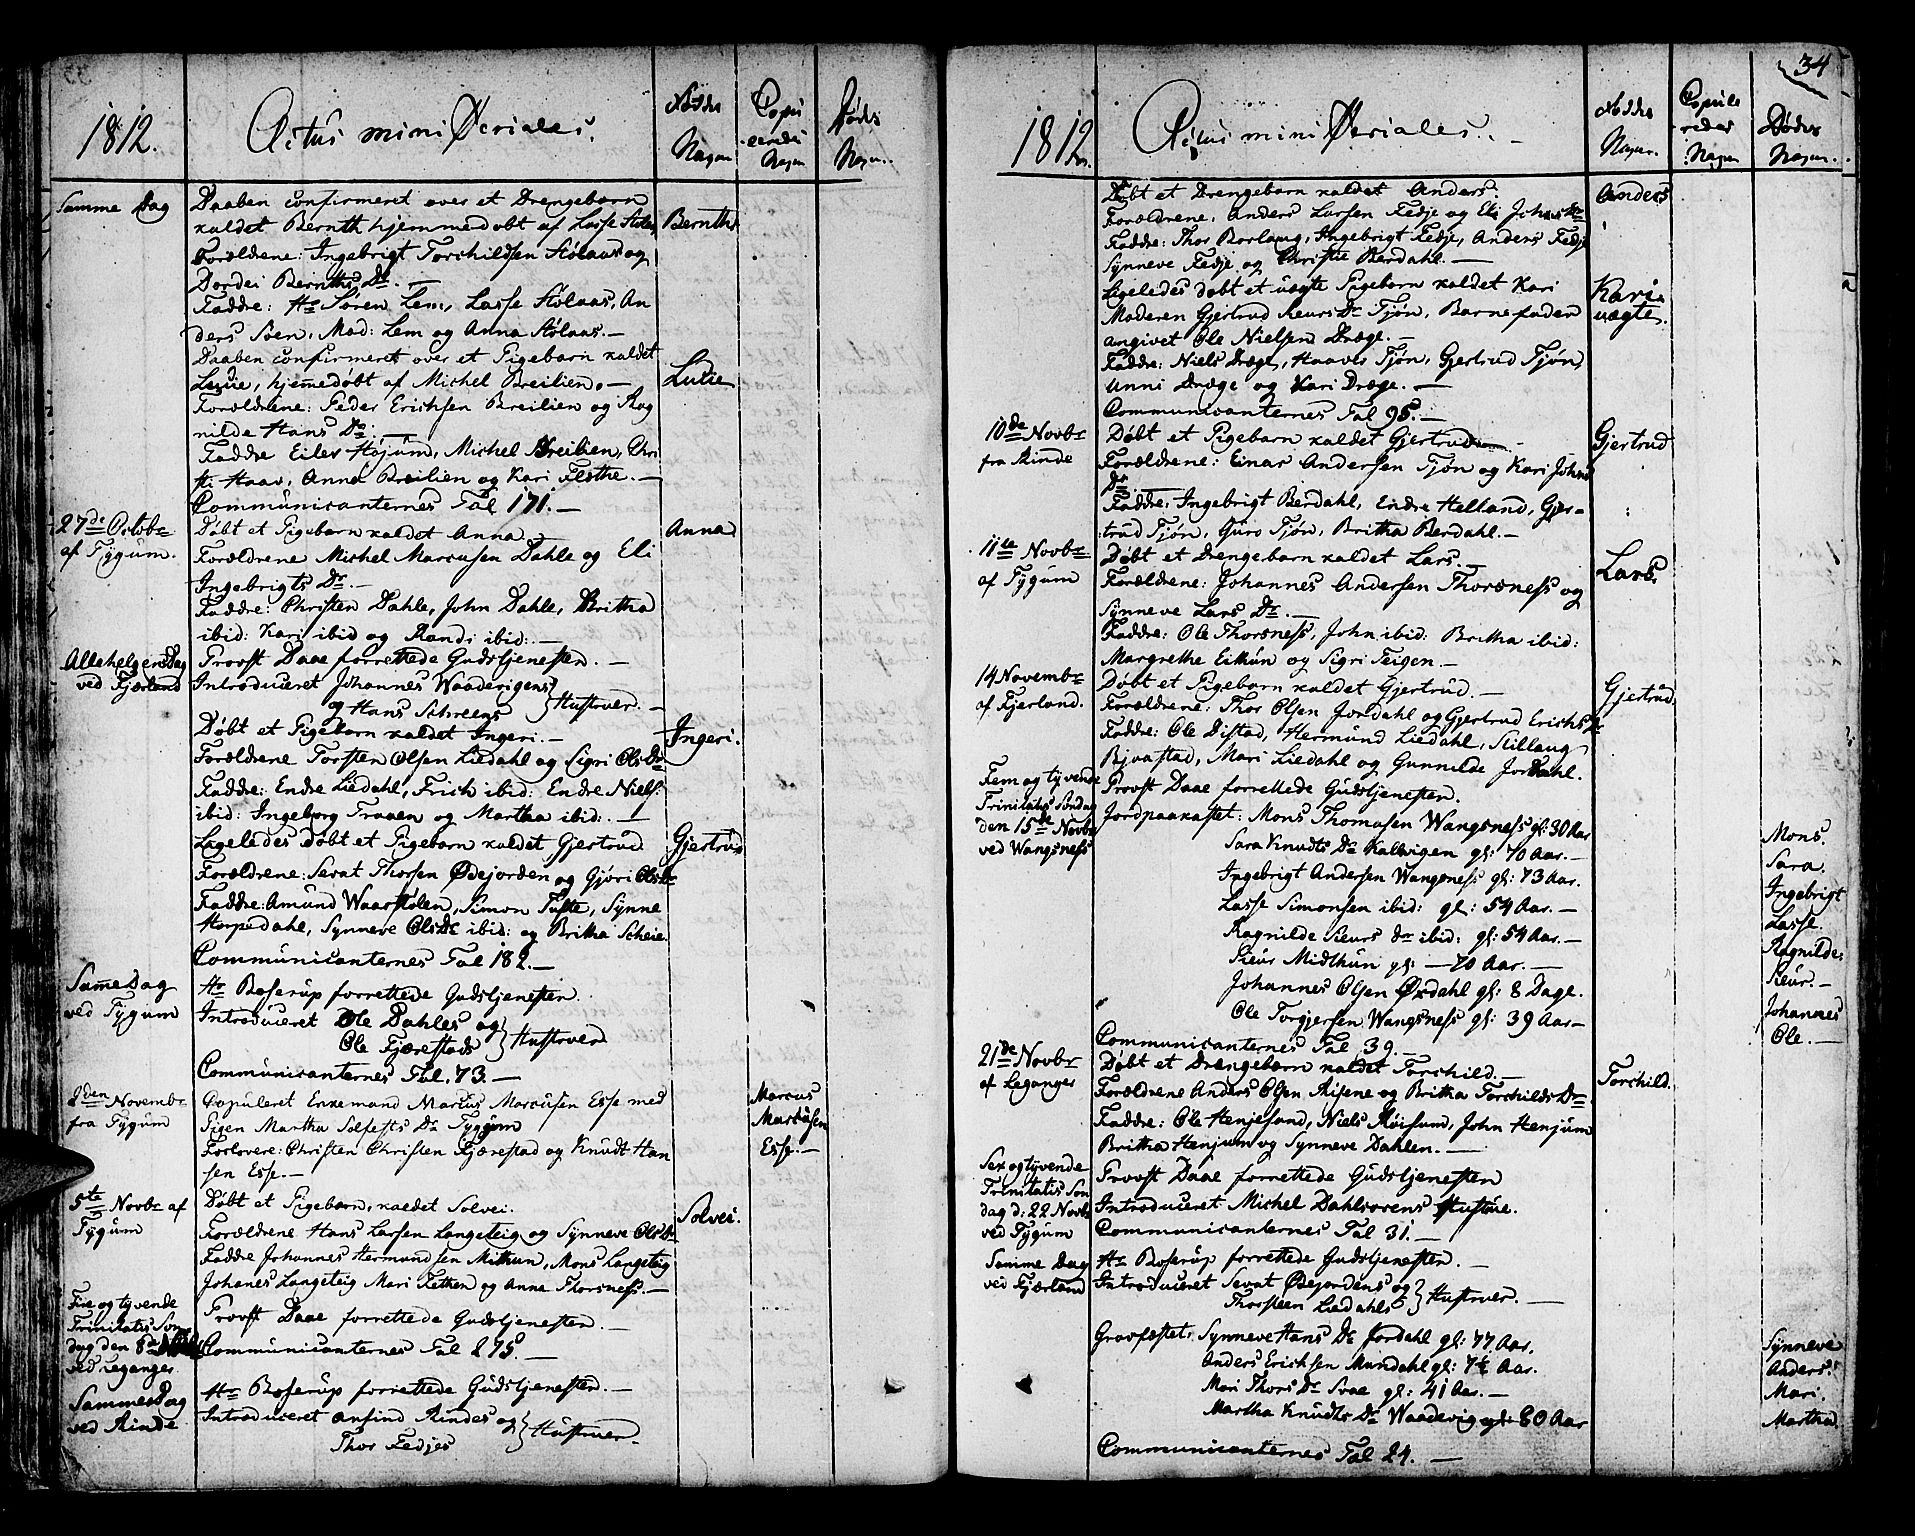 1812.
Actus ministeriales.
Fødde Nagen
Copulerede Nagen
Døde Nagen.
Samme Dag
Daaben confirmeret over et Drengebarn
kaldet Bernth hjemmedøbt af Lasse Stølas,
Forældrene: Ingebrigt Torchildsen Stølaas og
Dordei Bernths Dr. —
Faddre: Hr Søren Lem, Lasse Stølaas, An
ders Soen, Mad: Lem og Anna Stølaas. —
Bernth
Daaben confirmeret over et Pigebarn kaldet
Lucie, hjemedøbt af Michel Breilien. —
Forældrene: Peder Erichsen Breilien og Rag
nilde Hans Dr. —
Faddre Eiler Højum, Michel Breilien, Chri
sti Haav, Anna Breilien og Kari Flethe. —
Communicanternes Tal 171. —
Lucie
27de Octobr
af Tygum.
Døbt et Pigebarn kaldet Anna
Forældrene Michel Marcusen Dahle og Eli
Ingebrigts Dr. —
Faddre: Christen Dahle, John Dahle, Britha
ibid: Kari ibid og Randi ibid: —
Anna
Allehelgens Dag
ved Fjærland
Provst Daae forrettede Gudstjenesten. —
Introduceret Johannes Waaderigens
og Hans Schreegs } Hustruer. —
Døbt et Pigebarn kaldet Ingeri. —
Forældrene Torsten Olsen Liedahl og Sigri Ols Dr
Faddre: Endre Liedahl, Erich ibid: Endre Niels:
ibid: Ingeborg Traaen og Martha ibid: —
Ingeri.
Ligeledes døbt et Pigebarn kaldet Gjertrud
Forældrene: Sevat Thorsen Ødejorden og Gjøri Ols Dr
Faddre: Amund Waarstølen, Simon Tufte, Synne
Horpedahl, Synneve Ols Dr ibid: og Britha Scheie.
Communicanternes Tal 182. —
Gjertrud
Samme Dag
ved Tygum
Hr Boserup forrettede Gudstjenesten.
Introduceret Ole Dahles og
Ole Fjærestads } Hustruer
Communicanternes Tal. 73. —
2den Novembr
fra Tygum
Copuleret Enkemand Marcus Marcusen Esse med
Pigen Martha Solfests Dr Tyggum
Forlovere: Christen Christen Fjærestad og Knudt Han
sen Esse. —
Marcus
Marcusen
Esse. —
5te Novbr af
Tygum
Døbt et Pigebarn, kaldet Solvei.
Forældrene Hans Larsen Langeteig og Synneve Ols Dr
Faddre Johannes Hermundsen Mithun, Mons Langeteig
Johanes Langeteig Mari Fethen og Anna Thorsness. —
Solvei.
Fire og tyvende
Trinitatis Søn
dag den 8de Novbr
ved Leganger
Provst Daae forrettede Gudstjenesten. —
Communicanternes Tal 275. —
Samme Dag
ved Rinde
Hr Boserup forrettede Gudstjenesten. —
Introduceret Anfind Rindes og
Thor Fedjes } Hustruer.
34
1812.
Actus ministeriales.
Fødde Nagen.
Copulereder Nagen
Døde Nagen.
Døbt et Drengebarn kaldet Anders.
Forældrene: Anders Larsen Fedje og Eli Johns Dr
Faddre: Thor Borlaug, Ingebrigt Fedje, Anders Fedje
Synneve Fedje og Christie Berdahl. —
Anders
Ligeledes døbt et uægte Pigebarn kaldet Kari
Moderen Gjertrud Seurs Dr Tjøn, Barnefader
angivet Ole Nielsen Dræge. —
Faddre: Niels Dræge, Haavor Tjøn, Gjertrud Tjøn,
Anni Dræge og Kari Dræge. —
Communicanternes Tal 95. —
Kari
uægte.
10de Novbr
fra Rinde
Døbt et Pigebarn kaldet Gjertrud. —
Forældrene: Einar Andersen Tjøn og Kari Johans
Dr. —
Faddre: Ingebrigt Berdahl, Endre Helland, Gjer-
trud Tjøn, Guro Tjøn, Britha Berdahl. —
Gjertrud
11te Novbr
af Tygum
Døbt et Drengebarn kaldet Lars. —
Forældrene: Johannes Andersen Thorsness og
Synneve Lars Dr. —
Faddre: Ole Thorsness, John ibid: Britha ibid:
Margrethe Eithun og Sigri Teigen. —
Lars.
14 Novembr
af Fjerland.
Døbt et Pigebarn kaldet Gjertrud. —
Forældrene: Thor Olsen Jordahl og Gjertrud Erichs Dr
Faddre: Ole Distad, Hermund Liedahl, Stillaug
Bjvastad, Mari Liedahl og Gunnilde Jordahl.
Gjertrud.
Fem og tyvende
Trinitatis Søndag
den 15de Novbr
ved Wangsness
Provst Daae forrettede Gudstjenesten.
Jordpaakastet: Mons Thomasen Wangsness gl: 30 Aar
Sara Knudts Dr Kalvigen gl: 70 Aar. —
Ingebrigt Andersen Wangsness gl: 73 Aar.
Lasse Simonsen ibid: gl: 54 Aar. —
Ragnilde Seurs Dr ibid: gl: 54 Aar. —
Sieur Midthun gl: — 70 Aar. —
Johannes Olsen Øxdahl gl: 8 Dage.
Ole Torgjersen Wangsness gl: 39 Aar —
Communicanternes Tal 39. —
Mons.
Sara.
Ingebrigt
Lasse.
Ragnilde.
Seur. —
Johannes
Ole. —
21de Novbr
af Leganger
Døbt et Drengebarn kaldet Torchild. —
Forældrene Anders Olsen Risene og Britha Torchilds Dr
Faddre: Ole Henjesand, Niels Røisund, John Henjum
Britha Henjum og Synneve Dahlen. —
Torchild.
Sex og tyvende
Trinitatis Søn
dag d: 22 Novbr
ved Tygum
Provst Daae forrettede Gudstjenesten
Introduceret Michel Dahlsorens Hustrue.
Communicanternes Tal 31. —
Samme Dag
ved Fjærland
Hr Boserup forrettede Gudstjenesten. —
Introduceret Sevat Ødejordens og
Thorsteen Liedahls } Hustruer. —
Gravfæstet: Synneve Hans Dr Jordahl gl: 77 Aar.
Anders Erichsen Mundahl gl: 7½ Aar.
Mari Thors Dr Svae gl: 41 Aar. —
Martha Knudts Dr Waadevig gl: 80 Aar
Communicanternes Tal 24. —
Synneve
Anders.
Mari.
Martha